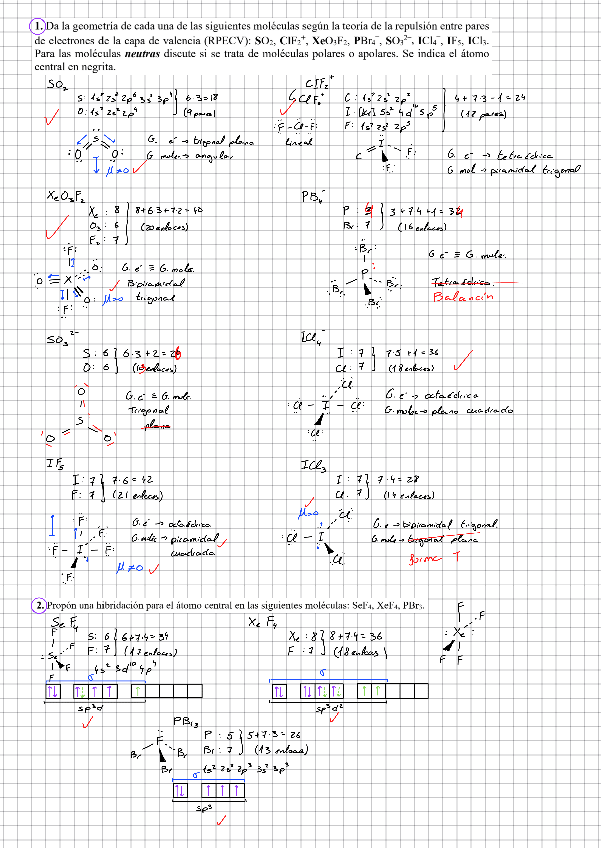 1. Da la geometría de cada una de las siguientes moléculas según la teoría de la repulsión entre pares
de electrones de la capa de valencia (RPECV): SO₂, ClF₂⁺, XeO₃F₂, PBr₄⁻, SO₃²⁻, ICl₄⁻, IF₅, ICl₃.
Para las moléculas neutras discute si se trata de moléculas polares o apolares. Se indica el átomo
central en negrita.
SO₂
S: 1s² 2s² 2p⁶ 3s² 3p⁴
O: 1s² 2s² 2p⁴
6·3=18
(9 pares)
G. e⁻ → trigonal plana
G. molec → angular
μ≠0
ClF₂⁺
ClF₂⁺
C: 1s² 2s² 2p²
I: [Kr] 5s² 4d¹⁰ 5p⁵
F: 1s² 2s² 2p⁵
4+7·3-1=24
(12 pares)
F-Cl-F:
Lineal
G. e⁻ → tetraédrica
G mol → piramidal trigonal
XeO₃F₂
Xe: 8
O₃: 6
F₂: 7
8+6·3+7·2=40
(20 enlaces)
G. e⁻ ≡ G. molec.
Bipiramidal
trigonal
μ=0
PBr₄⁻
Br: 7
(16 enlaces)
G e⁻ ≡ G. molec.
Tetraédrica
Balancín
SO₃²⁻
S: 6
O: 6
G. e⁻ ≡ G. molec.
Trigonal
plana
ICl₄⁻
I: 7
Cl: 7
7·5+1=36
(18 enlaces)
G. e⁻ → octaédrica
G. molec → plano cuadrado
IF₅
I: 7
F: 7
7·6=42
(21 enlaces)
G. e⁻ → octaédrica
G. molec → piramidal
cuadrada
μ≠0
ICl₃
I: 7
Cl: 7
7·4=28
(14 enlaces)
μ=0
G. e → bipiramidal trigonal
G. molec → trigonal plana
forma T
2. Propón una hibridación para el átomo central en las siguientes moléculas: SeF₄, XeF₄, PBr₃.
SeF₄
S: 6
F: 7
6+7·4=34
(17 enlaces)
4s² 3d¹⁰ 4p⁴
σ
sp³d
XeF₄
Xe: 8
F: 7
8+7·4=36
(18 enlaces)
σ
sp³d²
PBr₃
P: 5
Br: 7
5+7·3=26
(13 enlaces)
1s² 2s² 2p³ 3s² 3p³
σ
sp³